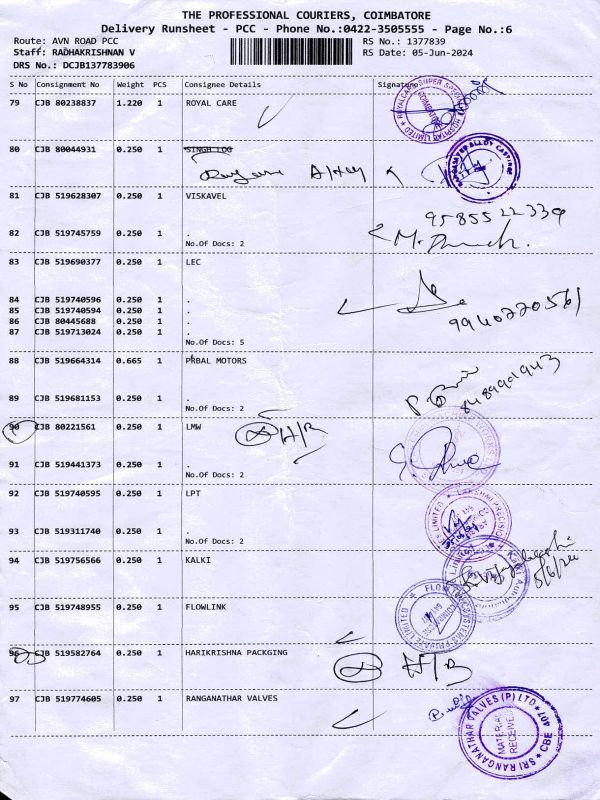 THE PROFESSIONAL COURIERS, COIMBATORE
Delivery Runsheet - PCC - Phone No.:0422-3505555 - Page No.:6
Route: AVN ROAD PCC RS No.: 1377839
Staff: RADHAKRISHNAN V RS Date: 05-Jun-2024
DRS No.: DCJB137783906
S No Consignment No Weight PCS Consignee Details Signature
79 CJB 80238837 1.220 1 ROYAL CARE
80 CJB 80044931 0.250 1 SINGH LOG
81 CJB 519628307 0.250 1 VISKAVEL
9585522339
82 CJB 519745759 0.250 1 .
No.Of Docs: 2
83 CJB 519690377 0.250 1 LEC
84 CJB 519740596 0.250 1 .
85 CJB 519740594 0.250 1 .
86 CJB 80445688 0.250 1 .
87 CJB 519713024 0.250 1 .
9940770561
No.Of Docs: 5
88 CJB 519664314 0.665 1 PRBAL MOTORS
89 CJB 519681153 0.250 1 .
No.Of Docs: 2
90 CJB 80221561 0.250 1 LMW H/B
91 CJB 519441373 0.250 1 .
No.Of Docs: 2
92 CJB 519740595 0.250 1 LPT
93 CJB 519311740 0.250 1 .
No.Of Docs: 2
94 CJB 519756566 0.250 1 KALKI
5/6/24
95 CJB 519748955 0.250 1 FLOWLINK
96 CJB 519582764 0.250 1 HARIKRISHNA PACKGING
H/B
97 CJB 519774605 0.250 1 RANGANATHAR VALVES
SRI RANGANATHAR VALVES (P) LTD
CBE 407
MATERIAL
RECEIVED